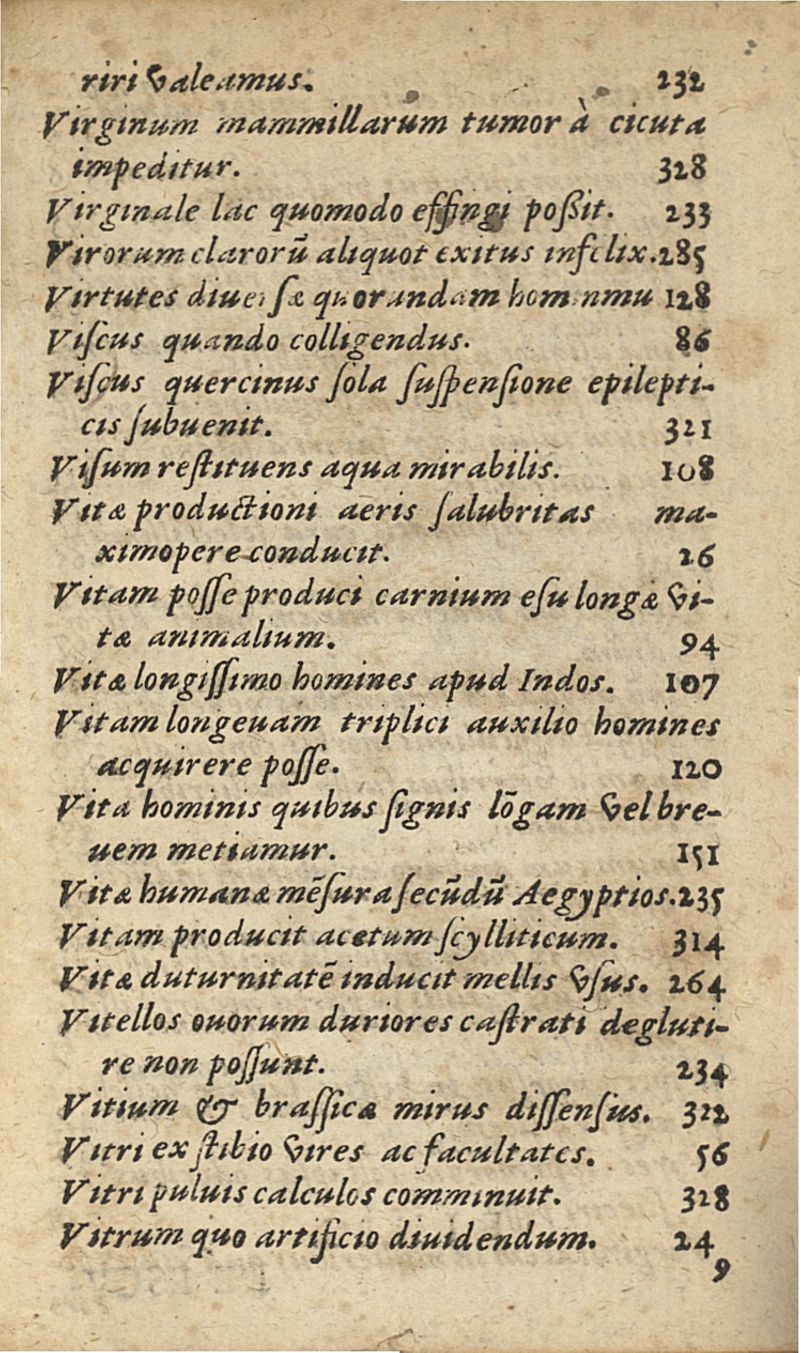 riri valeamus. 232
Virginum mammillarum tumor à cicuta
impeditur. 328
Virginale lac quomodo effingi poßit. 233
Virorum clarorū aliquot exitus infelix. 285
Virtutes diuersæ quorundam homınmu 128
Viſcus quando colligendus. 86
Viſcus quercinus ſola ſuſpenſione epilepti-
cis ſubuenit. 321
Viſum reſtituens aqua mirabilis. 108
Vitæ productioni aeris ſalubritas ma-
ximopere conducit. 26
Vitam poſſe produci carnium eſu longæ vi-
tæ animalium. 94
Vitæ longiſſimo homines apud Indos. 107
Vitam longeuam triplici auxilio homines
acquirere poſſe. 120
Vita hominis quibus ſignis lōgam vel bre-
uem metiamur. 151
Vitæ humanæ mēſura ſecūdū Aegyptios. 235
Vitam producit acetum ſcylliticum. 314
Vitæ duturnitatē inducit mellis vſus. 264
Vitellos ouorum duriores caſtrati degluti-
re non poſſunt. 234
Vitium & braſſicæ mirus diſſenſius. 322
Vitri ex ſtibio vires ac facultates. 56
Vitri puluis calculos comminuit. 328
Vitrum quo artificio diuidendum. 24
9